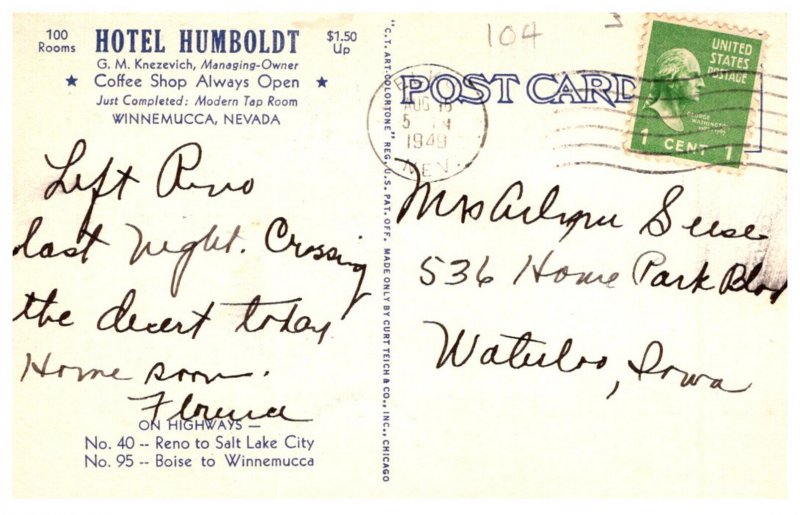 100
Rooms
HOTEL HUMBOLDT
$1.50
Up
G. M. Knezevich, Managing-Owner
★ Coffee Shop Always Open ★
Just Completed: Modern Tap Room
WINNEMUCCA, NEVADA
Left Reno
last night. Crossing
the desert today
Home soon.
Florence
ON HIGHWAYS —
No. 40 -- Reno to Salt Lake City
No. 95 -- Boise to Winnemucca
"C.T. ART-COLORTONE" REG. U.S. PAT. OFF. MADE ONLY BY CURT TEICH & CO., INC., CHICAGO
104
POST CARD
AUG
5
1949
NEV.
UNITED
STATES
POSTAGE
GEORGE
WASHINGTON
1 CENT 1
Mrs Arlynn
536 Home Park Blvd
Waterloo, Iowa